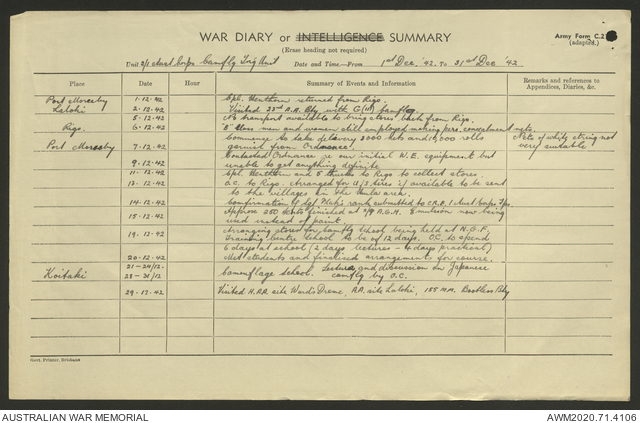 WAR DIARY or INTELLIGENCE SUMMARY
Army Form C.2
(adapted.)
(Erase heading not required)
Unit 2/1 Aust Corps Camflg Trg Unit Date and Time—From 1st Dec. '42. To 31st Dec '42
Place Date Hour Summary of Events and Information Remarks and references to Appendices, Diaries, &c.
Port Moresby 1.12.42 Cpl. Henthorn returned from Rigo.
Laloki 2.12.42 Visited 23rd A.A. Bty with G(III) Camflg.
5.12.42 No transport available to bring stores back from Rigo.
Rigo. 6.12.42 "B" Class men and women still employed making pers. concealment nets.
Port Moresby 7.12.42 Commence to take delivery 3000 nets and rolls Nets of white string not
garnish from Ordnance. very suitable
9.12.42 Contacted Ordnance re our initial W.E. equipment but
unable to get anything definite.
11.12.42 Cpl. Henthorn and 5 trucks to Rigo to collect stores.
13.12.42 O.C. to Rigo. Arranged for U/S tires if available to be sent
to the villages in the Hula area.
14.12.42 Confirmation of Sgt. rank submitted to C.R.E. 1 Aust Corps Tps.
15.12.42 Approx 250 finished at A.G.H. emulsion now being
used instead of paint.
19.12.42 Arranging stores for Camflg School being held at N.G.F.
Training Centre School to be of 12 days. O.C. to spend
6 days at school (2 days lectures - 4 days practical)
20.12.42 Met students and finalised arrangement for course.
21-24/12
Koitaki 28-31/12 Camouflage School. Lectures and discussion on Japanese
camflg by O.C.
29.12.42 Visited H.AA. site Ward's Drome, A.A. site Laloki, 155 M.M. Bootless Bty
Govt. Printer, Brisbane
AUSTRALIAN WAR MEMORIAL AWM2020.71.4106